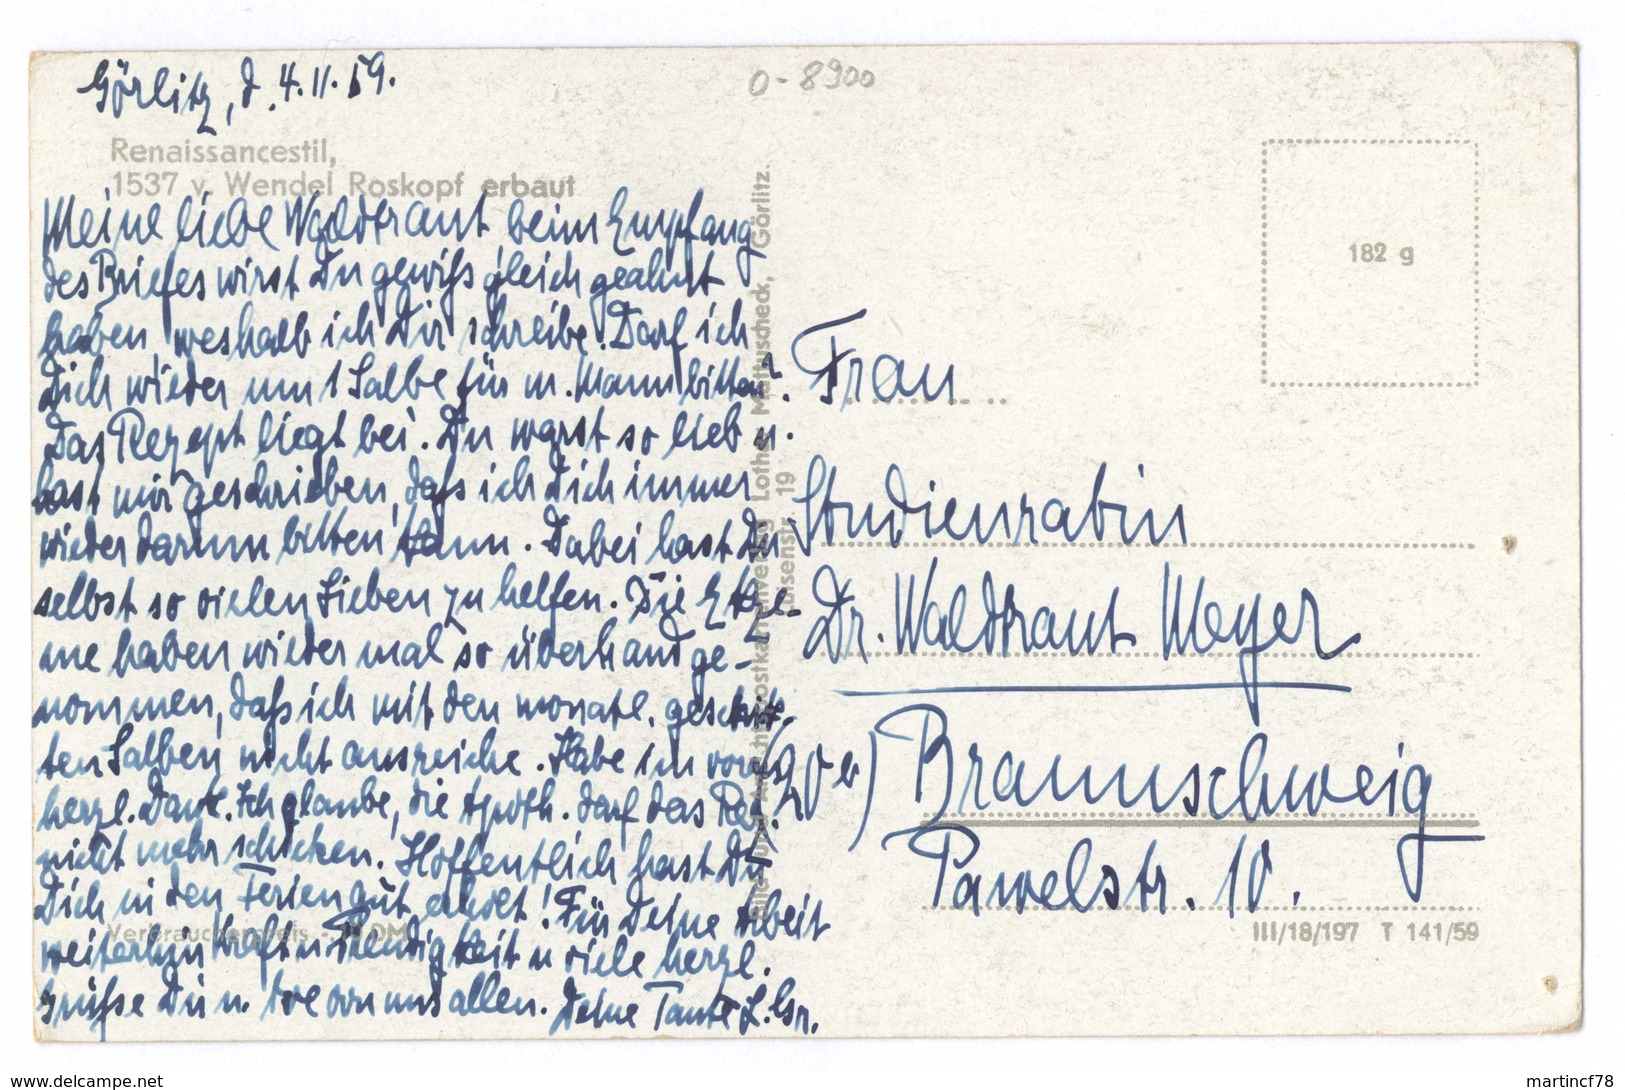 Görlitz, d. 4.11.59.
0-8900
Renaissancestil,
1537 v. Wendel Roskopf erbaut
Meine liebe Waldtraut, beim Empfang
des Briefes wirst Du gewiß gleich geahnt
haben, weshalb ich Dir schreibe. Darf ich
Dich wieder um 1 Salbe für m. Mann bitten?
Das Rezept liegt bei. Du warst so lieb u.
hast mir geschrieben, daß ich Dich immer
wieder darum bitten kann. Dabei hast Du
selbst so vielen Lieben zu helfen. Die Ekze-
me haben wieder mal so überhand ge-
nommen, daß ich mit den monatl. geschick-
ten Salben nicht ausreiche. Habe im voraus
herzl. Dank. Ich glaube, die Apoth. darf das Rez.
nicht mehr schicken. Hoffentlich hast Du
Dich in den Ferien gut erholt! Für Deine Arbeit
weiterhin Kraft u Freudigkeit u viele herzl.
Grüße Dir u. von uns allen. Deine Tante L.
Verbraucherpreis DM
Lothar Mattuscheck, Görlitz.
Luisenstr. 19
182 g
Frau
Studienrätin
Dr. Waldtraut Meyer
Braunschweig
Pawelstr. 10.
III/18/197 T 141/59
https://www.delcampe.net
martincf78